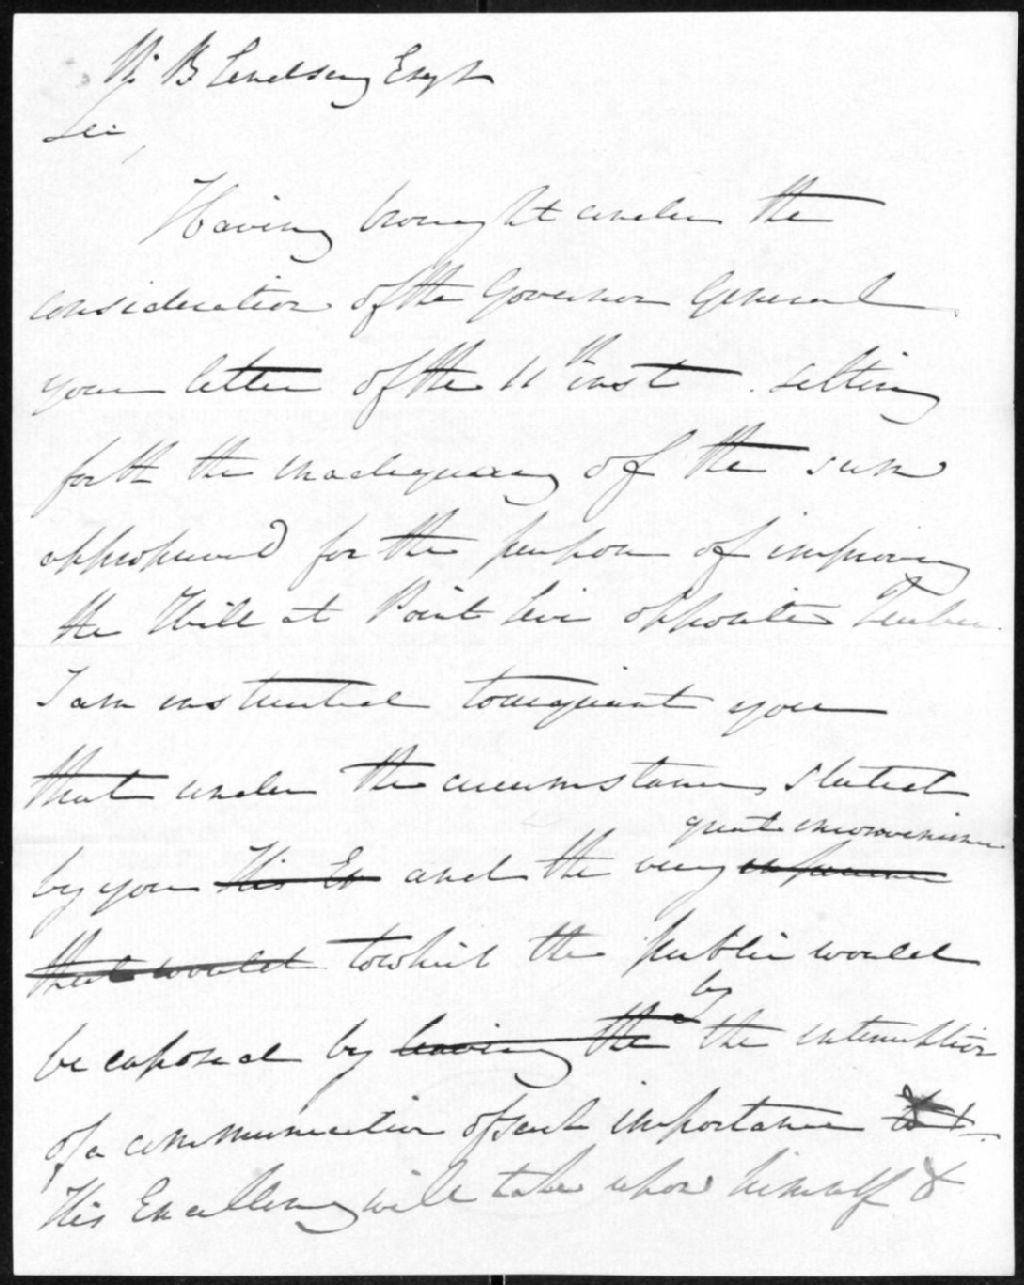 W. B Lindsay Esqr
Sir,
Having brought under the
consideration of the Governor General
your letter of the 11th inst. setting
forth the inadequacy of the sum
appropriated for the purpose of improving
the Hill at Point Levi opposite Quebec
I am instructed to acquaint you
that under the circumstances stated
great inconvenience
by you His Ex and the very
that would to which the public would
by
be exposed by leaving the the interruption
of a communication of such importance
His Excellency will take upon himself &